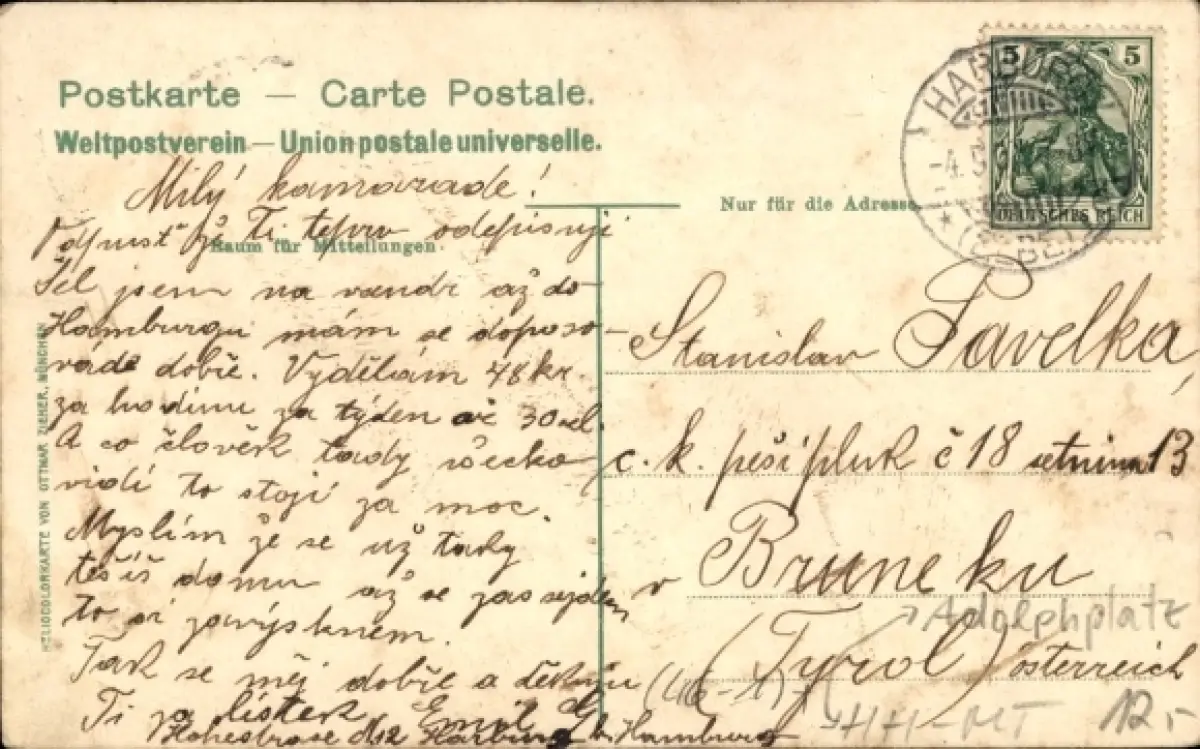 Postkarte — Carte Postale.
Weltpostverein — Union postale universelle.
Milý kamaráde!
Nur für die Adresse.
Odpusť že Ti teprv odepisuji
Raum für Mitteilungen.
Šel jsem na vandr až do
Hamburgu mám se doposa-
vade dobře. Vydělám 48 kr.
za hodinu za týden až 30 zl.
A co člověk tady všecko
vidí to stojí za moc.
Myslím že se už taky
těšíš domu až se zas sejdem
to si zavýsknem.
Tak se měj dobře a děkuju
Ti za lístek Emil
Hohestrase 12 Harburg b. Hamburg
HELIOCOLORKARTE VON OTTMAR ZIEHER, MÜNCHEN
5 5
DEUTSCHES REICH
HARBURG
-4.9
* (ELBE)
Stanislav Pavelka,
c. k. pěší pluk č 18 setnina 13
v Bruneku
Adolphplatz
(Tyrol) österreich
(46-1)
HH-MT 12,-